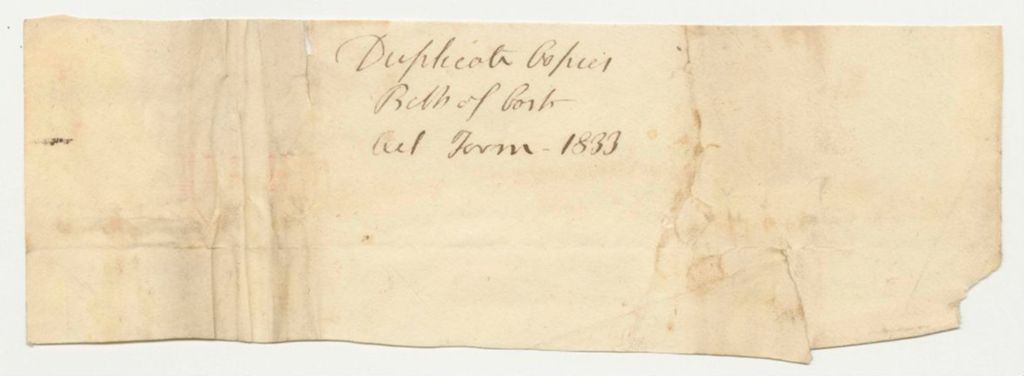 Duplicate Copies
Bills of Cost
Oct Term - 1833